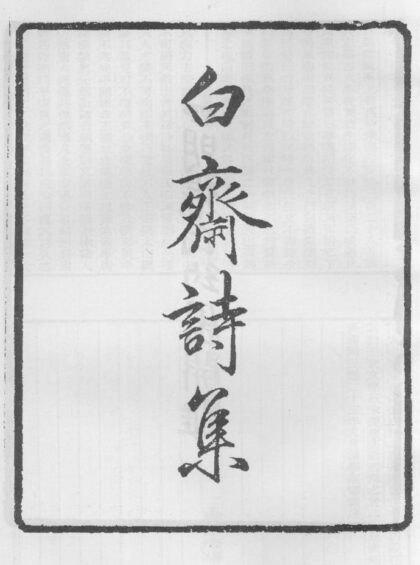 白齋詩集